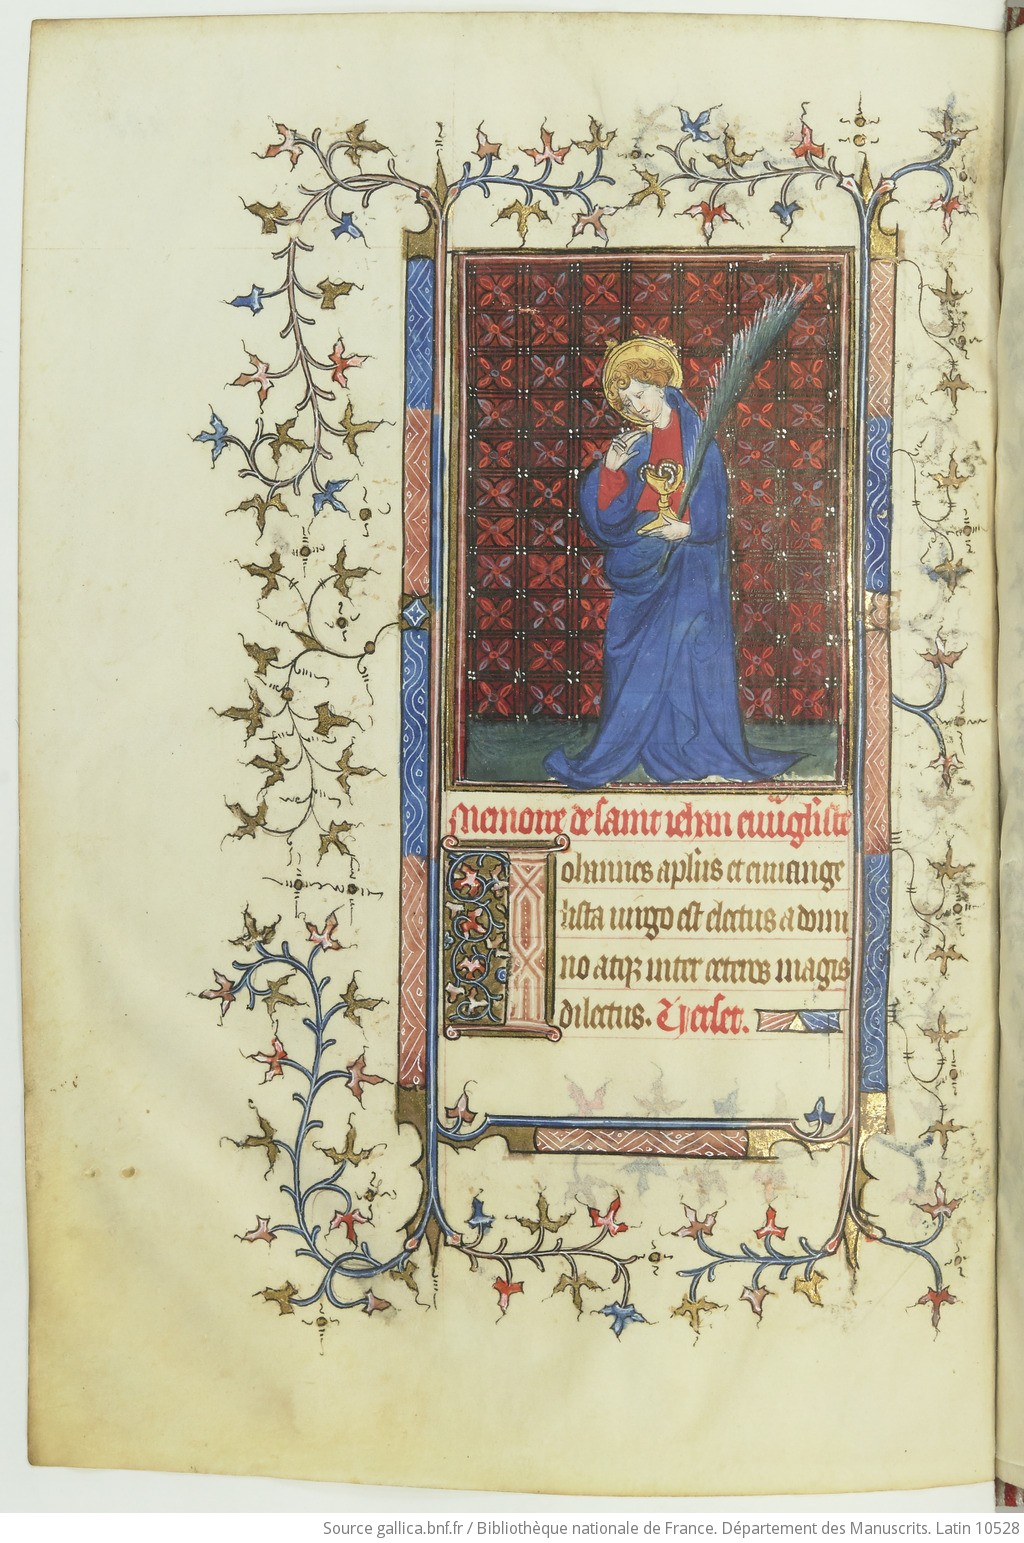 Memoire de saint iehan euũgliste
Iohannes apl̃us et euuange
lista uirgo est electus a domi
no atqꝫ inter ceteros magis
dilectus. Verset.
Source gallica.bnf.fr / Bibliothèque nationale de France. Département des Manuscrits. Latin 10528